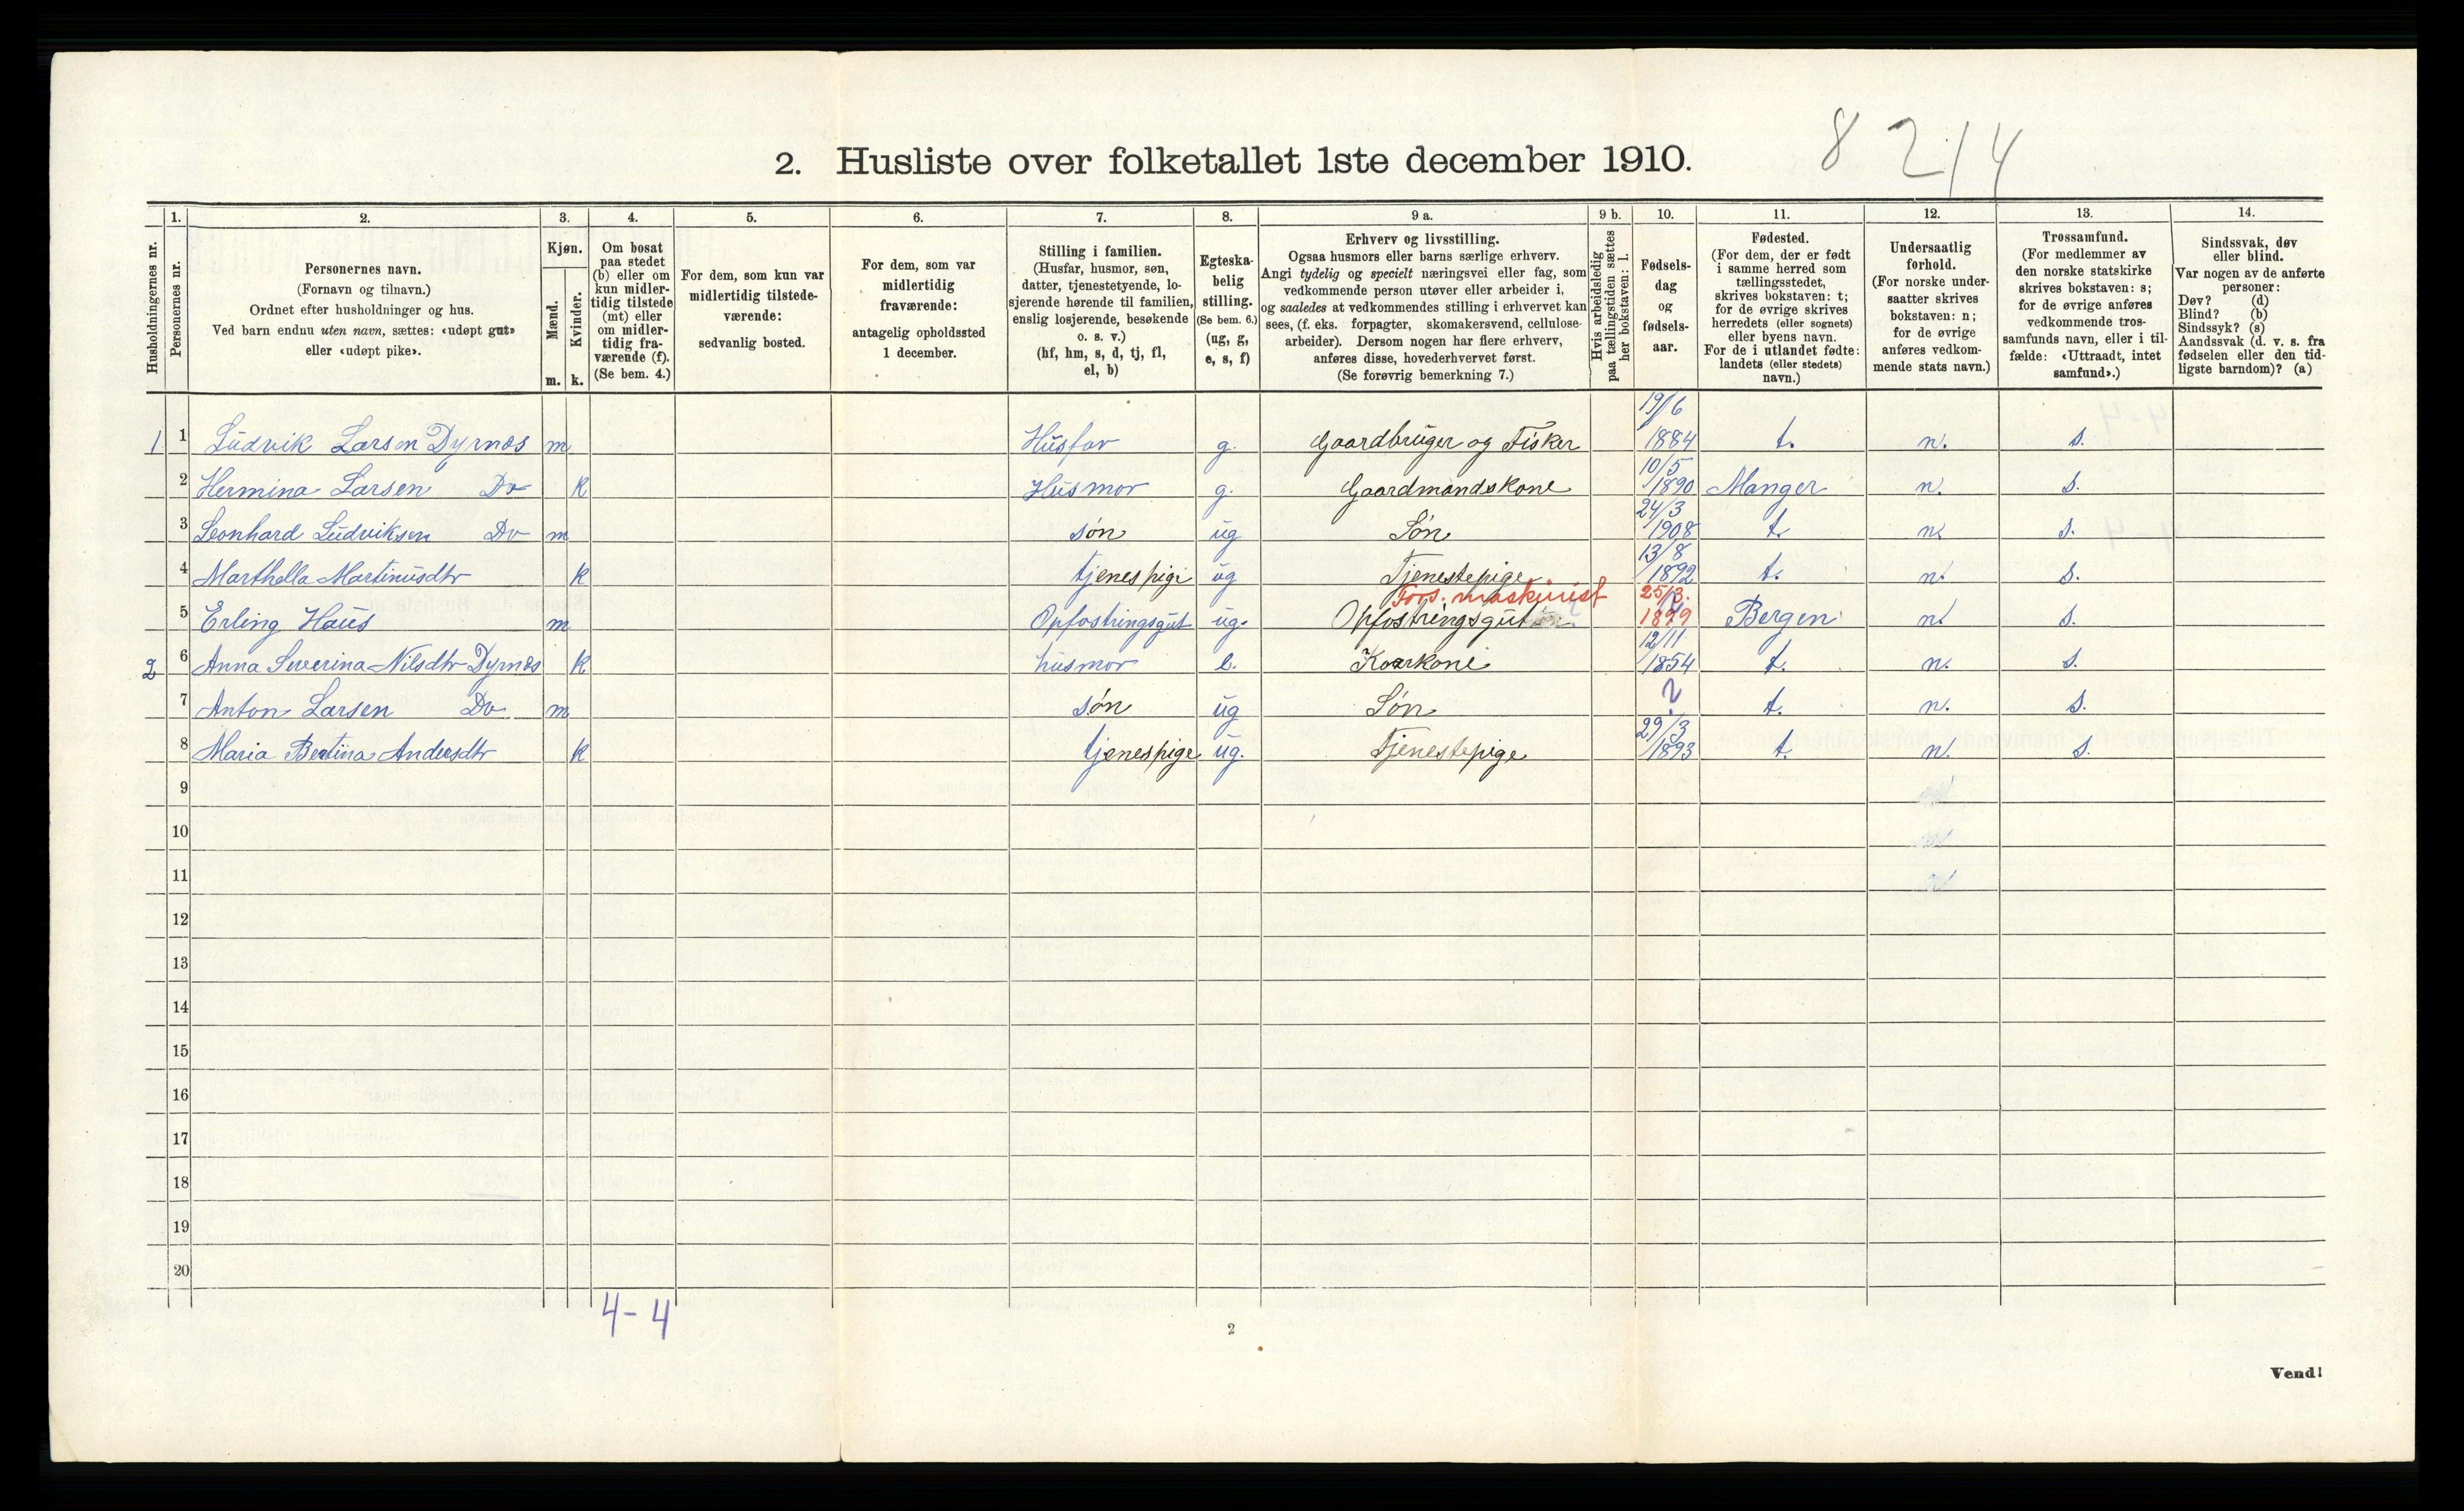 8 214
2. Husliste over folketallet 1ste december 1910.
1. 2. 3. 4. 5. 6. 7. 8. 9 a. 9 b. 10. 11. 12. 13. 14.
Husholdningernes nr.
Personernes nr.
Personernes navn.
(Fornavn og tilnavn.)
Ordnet efter husholdninger og hus.
Ved barn endnu uten navn, sættes: «udøpt gut»
eller «udøpt pike».
Kjøn.
Mænd.
Kvinder.
m. k.
Om bosat
paa stedet
(b) eller om
kun midler-
tidig tilstede
(mt) eller
om midler-
tidig fra-
værende (f).
(Se bem. 4.)
For dem, som kun var
midlertidig tilstede-
værende:
sedvanlig bosted.
For dem, som var
midlertidig
fraværende:
antagelig opholdssted
1 december.
Stilling i familien.
(Husfar, husmor, søn,
datter, tjenestetyende, lo-
sjerende hørende til familien,
enslig losjerende, besøkende
o. s. v.)
(hf, hm, s, d, tj, fl,
el, b)
Egteska-
belig
stilling.
(Se bem. 6.)
(ug, g,
e, s, f)
Erhverv og livsstilling.
Ogsaa husmors eller barns særlige erhverv.
Angi tydelig og specielt næringsvei eller fag, som
vedkommende person utøver eller arbeider i,
og saaledes at vedkommendes stilling i erhvervet kan
sees, (f. eks. forpagter, skomakersvend, cellulose-
arbeider). Dersom nogen har flere erhverv,
anføres disse, hovederhvervet først.
(Se forøvrig bemerkning 7.)
Hvis arbeidsledig
paa tællingstiden sættes
her bokstaven: l.
Fødsels-
dag
og
fødsels-
aar.
Fødested.
(For dem, der er født
i samme herred som
tællingsstedet,
skrives bokstaven: t;
for de øvrige skrives
herredets (eller sognets)
eller byens navn.
For de i utlandet fødte:
landets (eller stedets)
navn.)
Undersaatlig
forhold.
(For norske under-
saatter skrives
bokstaven: n;
for de øvrige
anføres vedkom-
mende stats navn.)
Trossamfund.
(For medlemmer av
den norske statskirke
skrives bokstaven: s;
for de øvrige anføres
vedkommende tros-
samfunds navn, eller i til-
fælde: «Uttraadt, intet
samfund».)
Sindssvak, døv
eller blind.
Var nogen av de anførte
personer:
Døv? (d)
Blind? (b)
Sindssyk? (s)
Aandssvak (d. v. s. fra
fødselen eller den tid-
ligste barndom)? (a)
1 1 Ludvik Larsen Dyrnæs m Husfar g. Gaardbruger og Fisker 19/6 1884 t. n. s.
2 Hermina Larsen Do k Husmor g. Gaardmandskone 10/5 1890 Manger n. s.
3 Leonhard Ludviksen Do m søn ug Søn 24/3 1908 t. n. s.
4 Marthella Martinusdtr k tjenespige ug Tjenestepige 13/8 1892 t. n. s.
Fors. maskinist
5 Erling Haus m Opfostringsgut ug. Opfostringsgut 25/3. 1899 Bergen n. s.
2 6 Anna Severina Nilsdtr Dyrnæs k husmor e. Kaarkone 12/11 1854 t. n. s.
7 Anton Larsen Do m søn ug Søn ? t. n. s.
8 Maria Bertina Andersdtr k tjenespige ug. Tjenestepige 29/3 1893 t. n. s.
9
10
11
12
13
14
15
16
17
18
19
20
4-4
2
Vend!